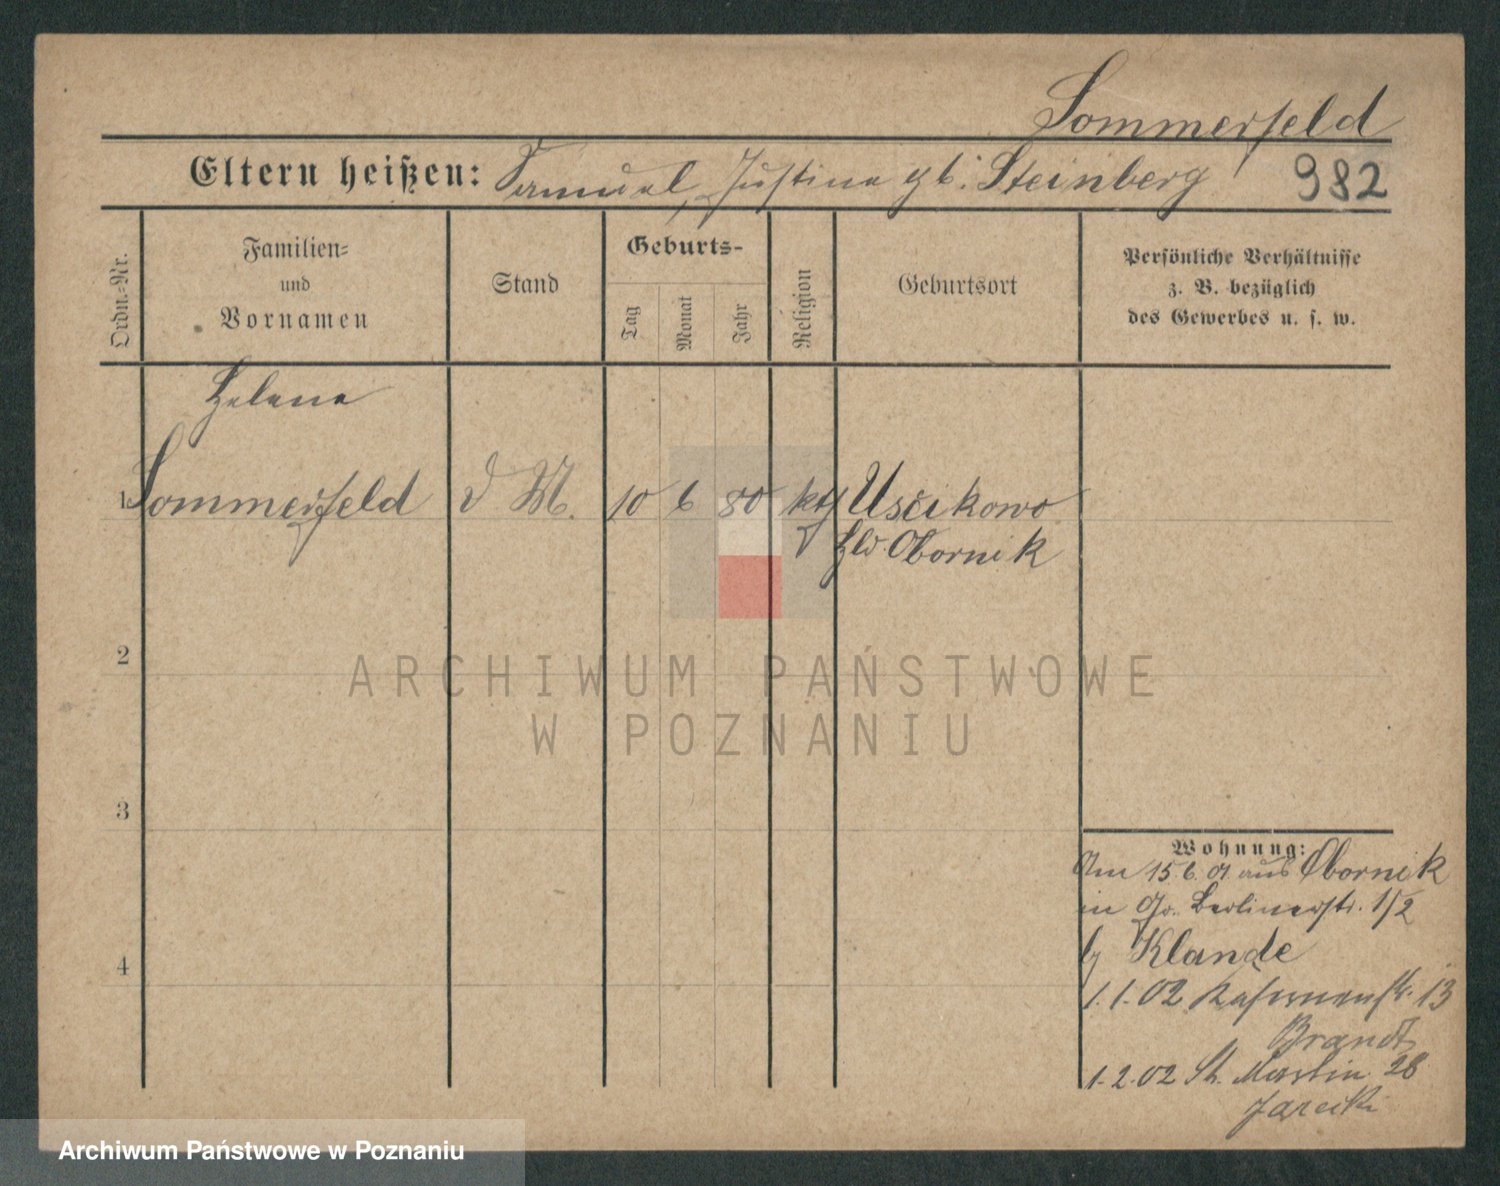 Sommerfeld
Eltern heißen: Samuel, Justina gb. Steinberg 982
Ordn.-Nr.
Familien- und Vornamen
Stand
Geburts-
Tag
Monat
Jahr
Religion
Geburtsort
Persönliche Verhältnisse
z. B. bezüglich
des Gewerbes u. s. w.
Helene
1 Sommerfeld d M. 10 6 80 kth Uscikowo
Obornik
2
ARCHIWUM PAŃSTWOWE
W POZNANIU
3
Wohnung:
Am 15.6.01 aus Obornik
in Gr. Berlinerstr. 1/2
4
b/ Klande
1.1.02 Kasernenstr. 13
Brandt
1.2.02 St. Martin 28
Jarecki
Archiwum Państwowe w Poznaniu